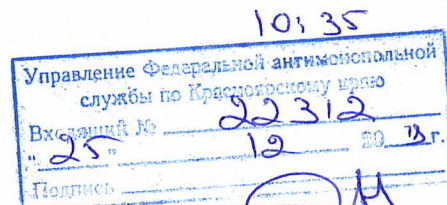 10; 35
Управление Федеральной антимонопольной
службы по Красноярскому краю
Входящий № 22312
"25" 12 20 13 г.
Подпись